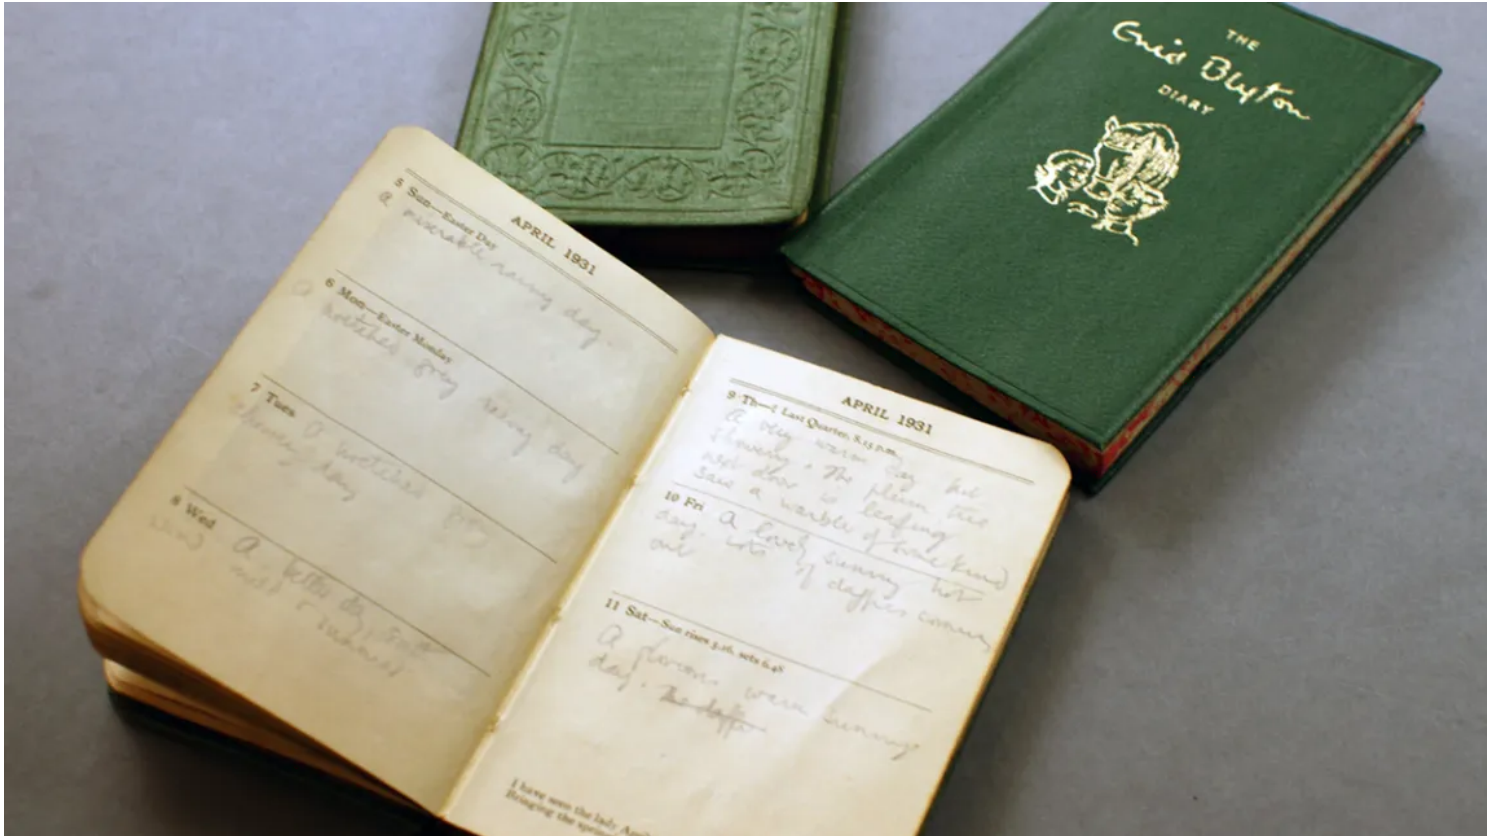 THE
Enid Blyton
DIARY
APRIL 1931
5 Sun—Easter Day
a miserable rainy day.
6 Mon—Easter Monday
A wretched grey rainy day
7 Tues
A wretched grey
showery day
8 Wed
A better day,
wind
mild &
APRIL 1931
9 Th—☾ Last Quarter, 8.15 p.m.
A very warm day but
showery. The plum tree
next door is leafing
Saw a warbler of some kind
10 Fri A lovely sunny hot
day. Lots of daffies coming
out
11 Sat—Sun rises 5.16, sets 6.48
A glorious warm sunny
day. The daffies
I have seen the lady April
Bringing the